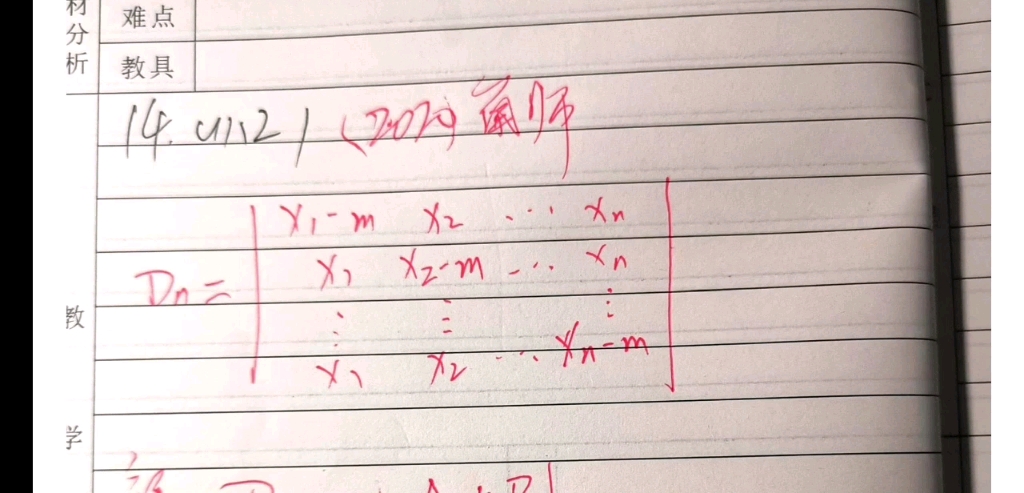 材分析
难点
教具
14. (2020
Dn =
x₁-m x₂ ... xn
x₁ x₂-m ... xn
⋮ ⋮ ⋮
x₁ x₂ ... xn-m
教
学